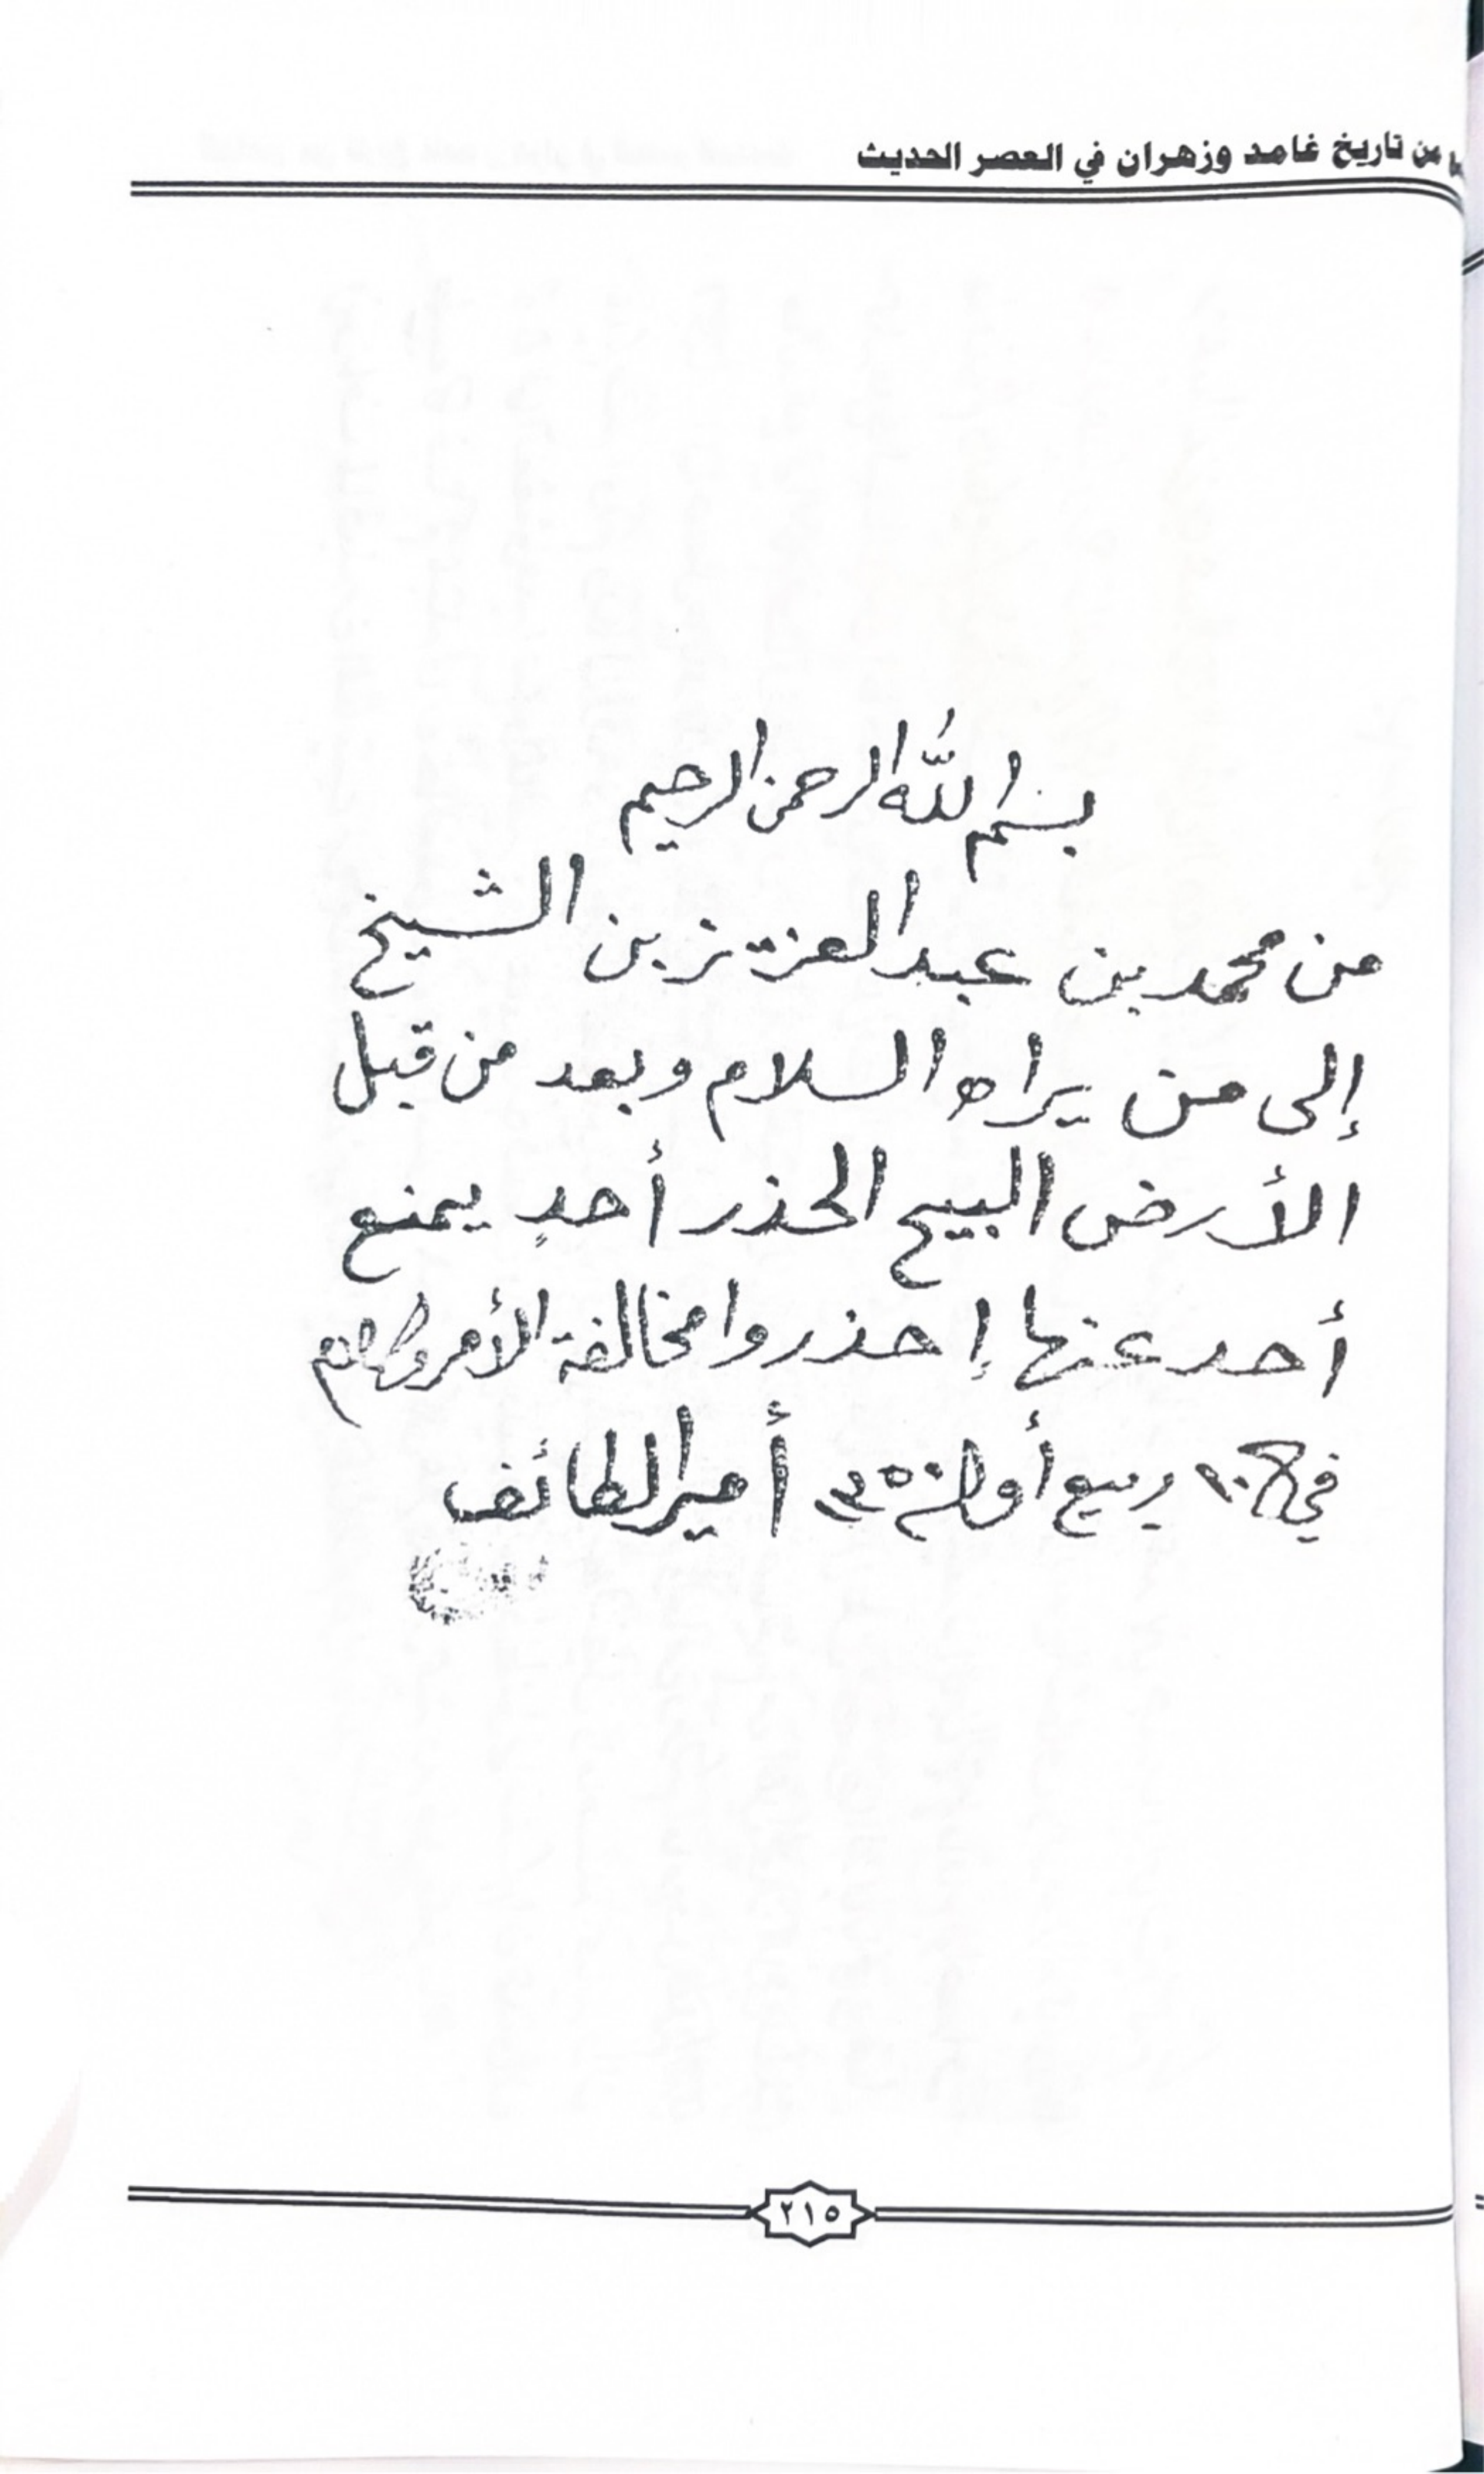 من تاريخ غامد وزهران في العصر الحديث
بسم الله الرحمن الرحيم
من محمد بن عبد العزيز بن الشيخ
إلى من يراه السلام وبعد من قبل
الأرض البيح الحذر أحدٍ يمنع
أحد عنها إحذروا مخالفة الأمر
في ربيع أول أمير الطائف
٢١٥